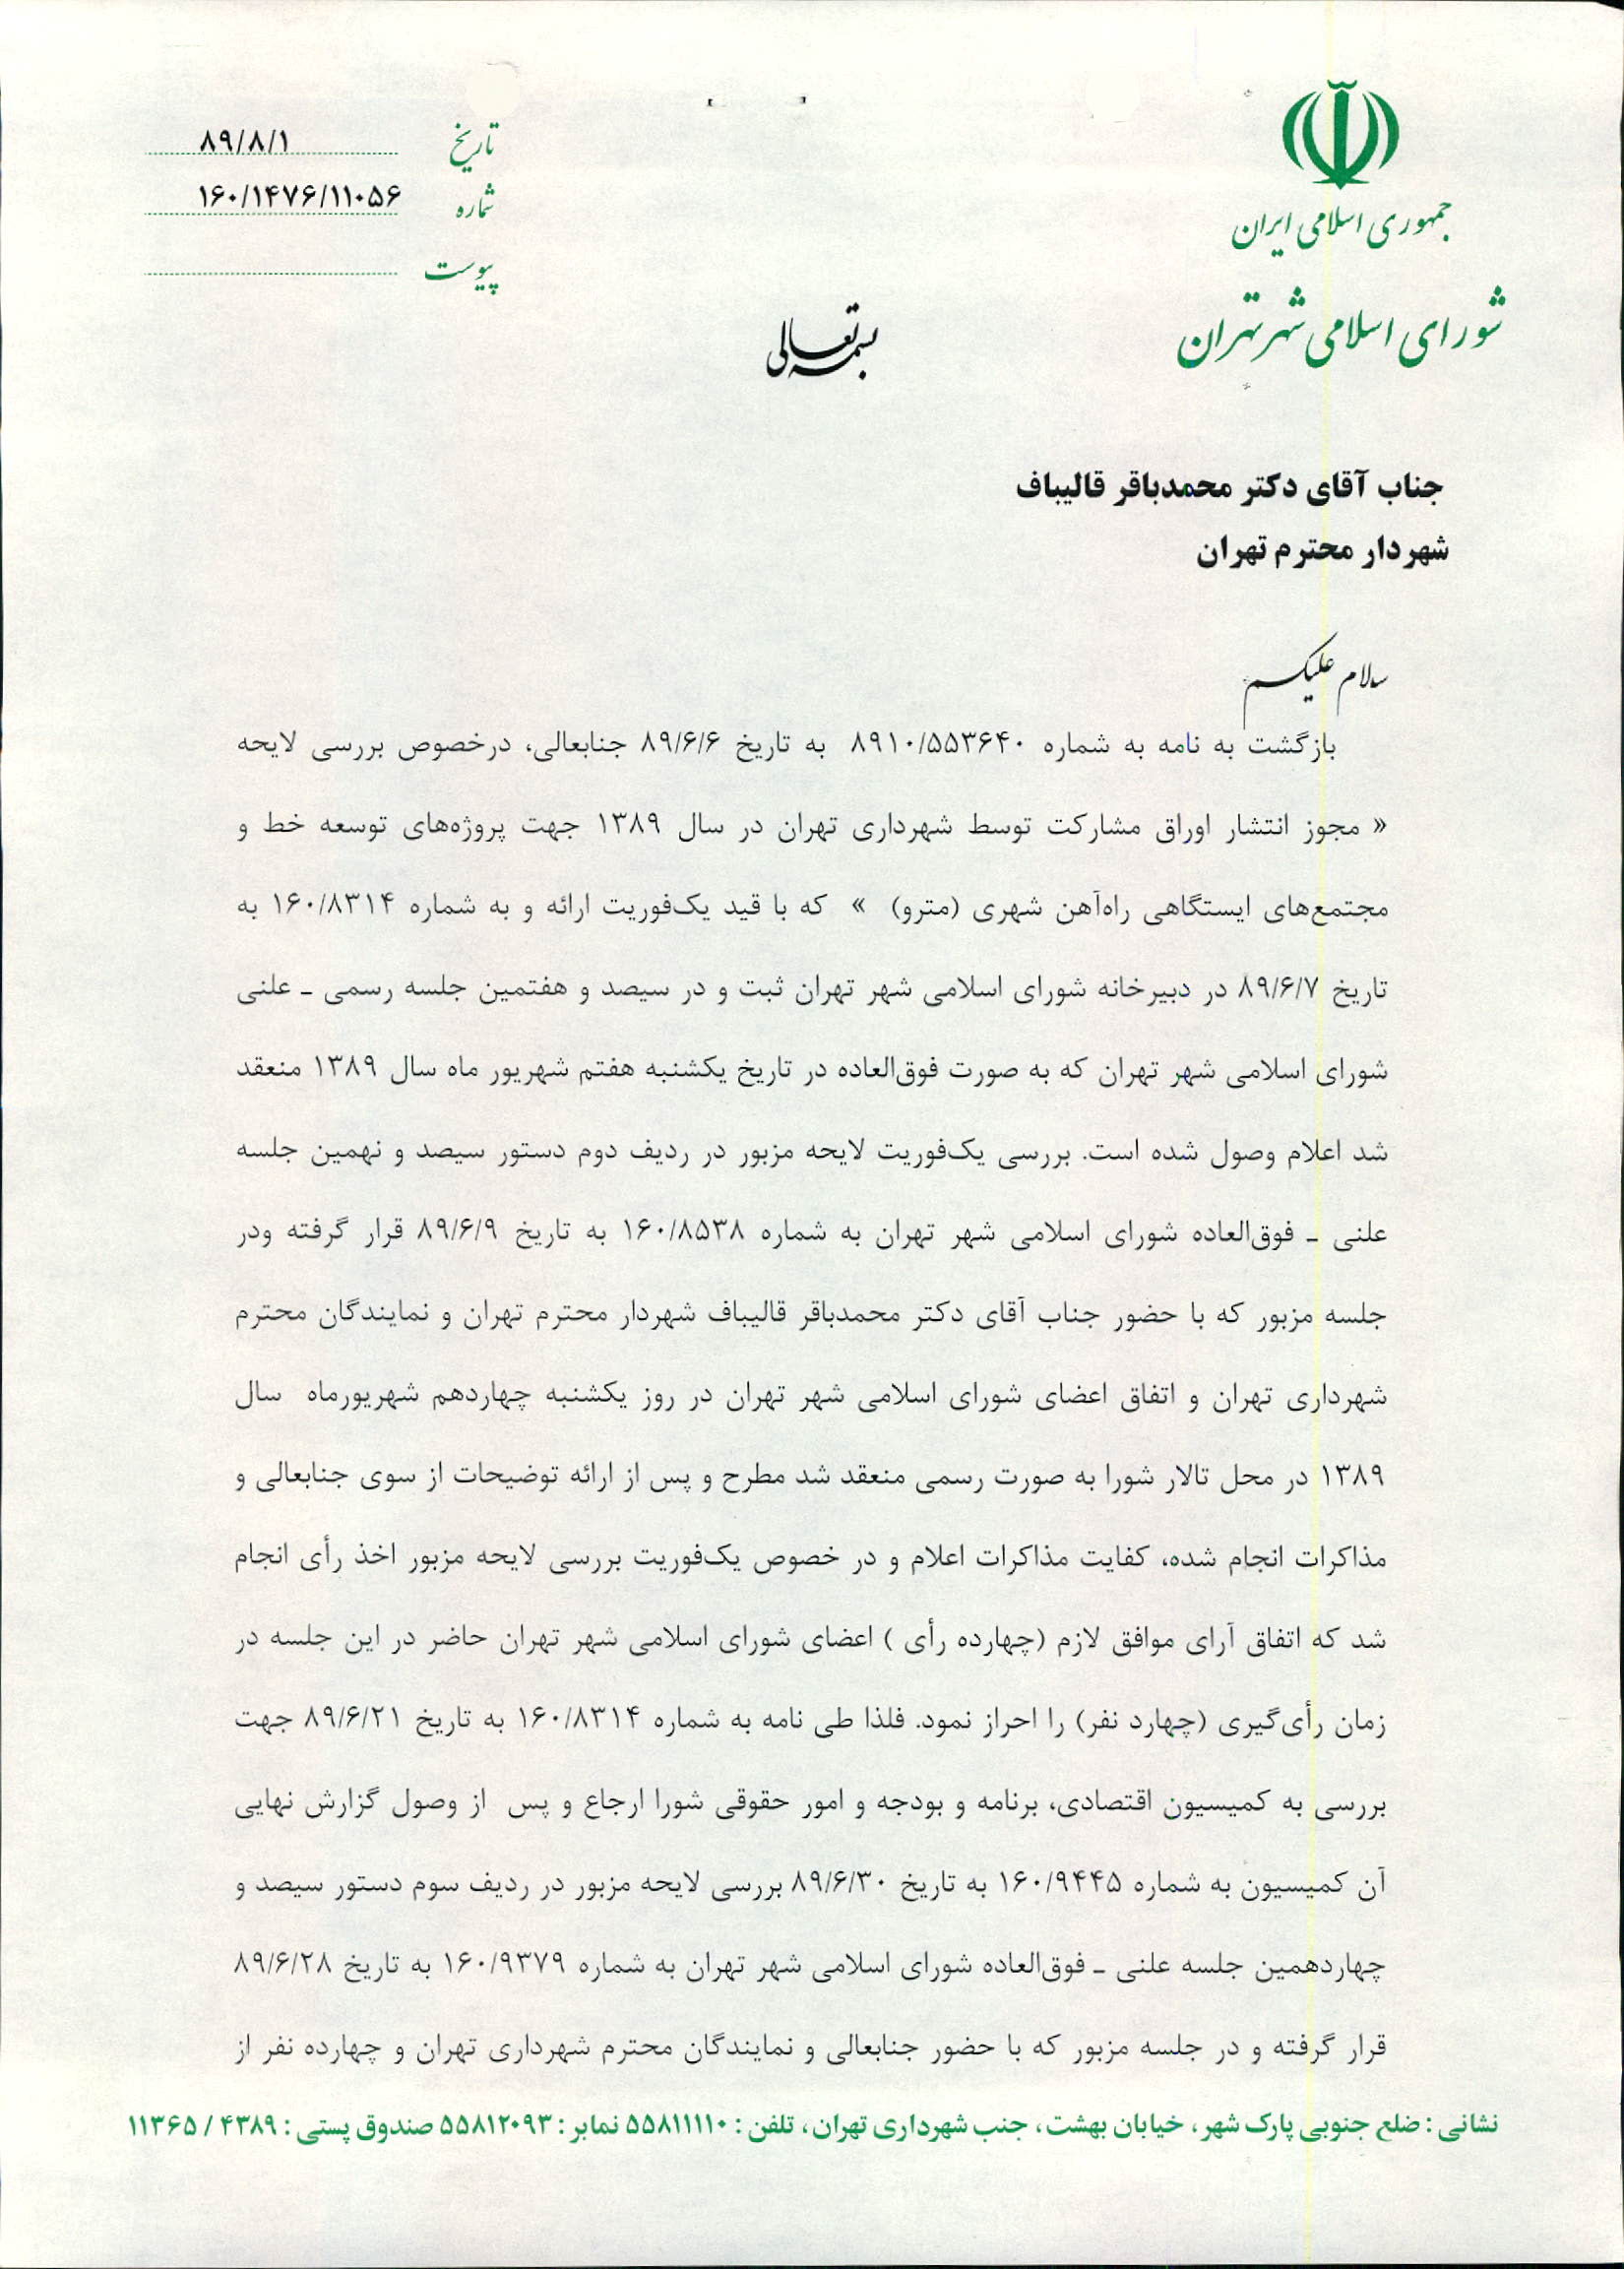 جمهوری اسلامی ایران
شورای اسلامی شهر تهران
تاریخ ۸۹/۸/۱
شماره ۱۶۰/۱۴۷۶/۱۱۰۵۶
پیوست
بسمه تعالی
جناب آقای دکتر محمدباقر قالیباف
شهردار محترم تهران
سلام علیکم
بازگشت به نامه به شماره ۸۹۱۰/۵۵۳۶۴۰ به تاریخ ۸۹/۶/۶ جنابعالی، درخصوص بررسی لایحه
« مجوز انتشار اوراق مشارکت توسط شهرداری تهران در سال ۱۳۸۹ جهت پروژه‌های توسعه خط و
مجتمع‌های ایستگاهی راه‌آهن شهری (مترو) » که با قید یک‌فوریت ارائه و به شماره ۱۶۰/۸۳۱۴ به
تاریخ ۸۹/۶/۷ در دبیرخانه شورای اسلامی شهر تهران ثبت و در سیصد و هفتمین جلسه رسمی ـ علنی
شورای اسلامی شهر تهران که به صورت فوق‌العاده در تاریخ یکشنبه هفتم شهریور ماه سال ۱۳۸۹ منعقد
شد اعلام وصول شده است. بررسی یک‌فوریت لایحه مزبور در ردیف دوم دستور سیصد و نهمین جلسه
علنی ـ فوق‌العاده شورای اسلامی شهر تهران به شماره ۱۶۰/۸۵۳۸ به تاریخ ۸۹/۶/۹ قرار گرفته ودر
جلسه مزبور که با حضور جناب آقای دکتر محمدباقر قالیباف شهردار محترم تهران و نمایندگان محترم
شهرداری تهران و اتفاق اعضای شورای اسلامی شهر تهران در روز یکشنبه چهاردهم شهریورماه سال
۱۳۸۹ در محل تالار شورا به صورت رسمی منعقد شد مطرح و پس از ارائه توضیحات از سوی جنابعالی و
مذاکرات انجام شده، کفایت مذاکرات اعلام و در خصوص یک‌فوریت بررسی لایحه مزبور اخذ رأی انجام
شد که اتفاق آرای موافق لازم (چهارده رأی ) اعضای شورای اسلامی شهر تهران حاضر در این جلسه در
زمان رأی‌گیری (چهارد نفر) را احراز نمود. فلذا طی نامه به شماره ۱۶۰/۸۳۱۴ به تاریخ ۸۹/۶/۲۱ جهت
بررسی به کمیسیون اقتصادی، برنامه و بودجه و امور حقوقی شورا ارجاع و پس از وصول گزارش نهایی
آن کمیسیون به شماره ۱۶۰/۹۴۴۵ به تاریخ ۸۹/۶/۳۰ بررسی لایحه مزبور در ردیف سوم دستور سیصد و
چهاردهمین جلسه علنی ـ فوق‌العاده شورای اسلامی شهر تهران به شماره ۱۶۰/۹۳۷۹ به تاریخ ۸۹/۶/۲۸
قرار گرفته و در جلسه مزبور که با حضور جنابعالی و نمایندگان محترم شهرداری تهران و چهارده نفر از
نشانی : ضلع جنوبی پارک شهر، خیابان بهشت، جنب شهرداری تهران، تلفن : ۵۵۸۱۱۱۱۰ نمابر : ۵۵۸۱۲۰۹۳ صندوق پستی : ۴۳۸۹ / ۱۱۳۶۵